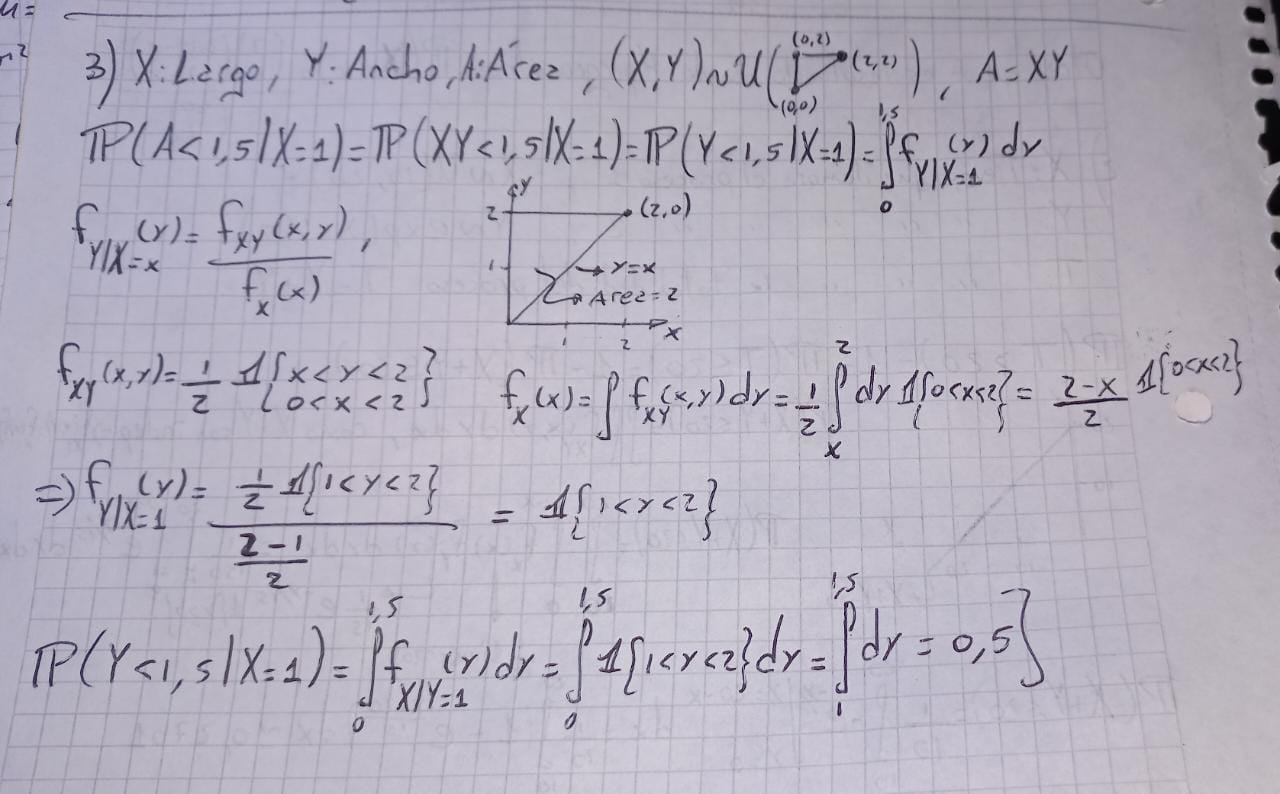 μ=
m²
3) X: Largo, Y: Ancho, A: Área, (X,Y)~U( (0,2) (2,2) (0,0) ), A=XY
ℙ(A<1,5|X=1)=ℙ(XY<1,5|X=1)=ℙ(Y<1,5|X=1)=∫₀^{1,5} f_{Y|X=1}(y) dy
f_{Y|X=x}(y)= f_{XY}(x,y) / f_X(x) ,
y
2
(2,0)
1
→ y=x
→ Area=2
1 2 x
f_{XY}(x,y)= 1/2 𝟙{x<y<2 0<x<2} f_X(x)=∫ f_{XY}(x,y)dy = 1/2 ∫_x^2 dy 𝟙{0<x<2} = (2-x)/2 𝟙{0<x<2}
⇒) f_{Y|X=1}(y)= (1/2 𝟙{1<y<2}) / ((2-1)/2) = 𝟙{1<y<2}
ℙ(Y<1,5|X=1)=∫₀^{1,5} f_{X|Y=1}(y)dy=∫₀^{1,5} 𝟙{1<y<2}dy=∫₁^{1,5} dy = 0,5